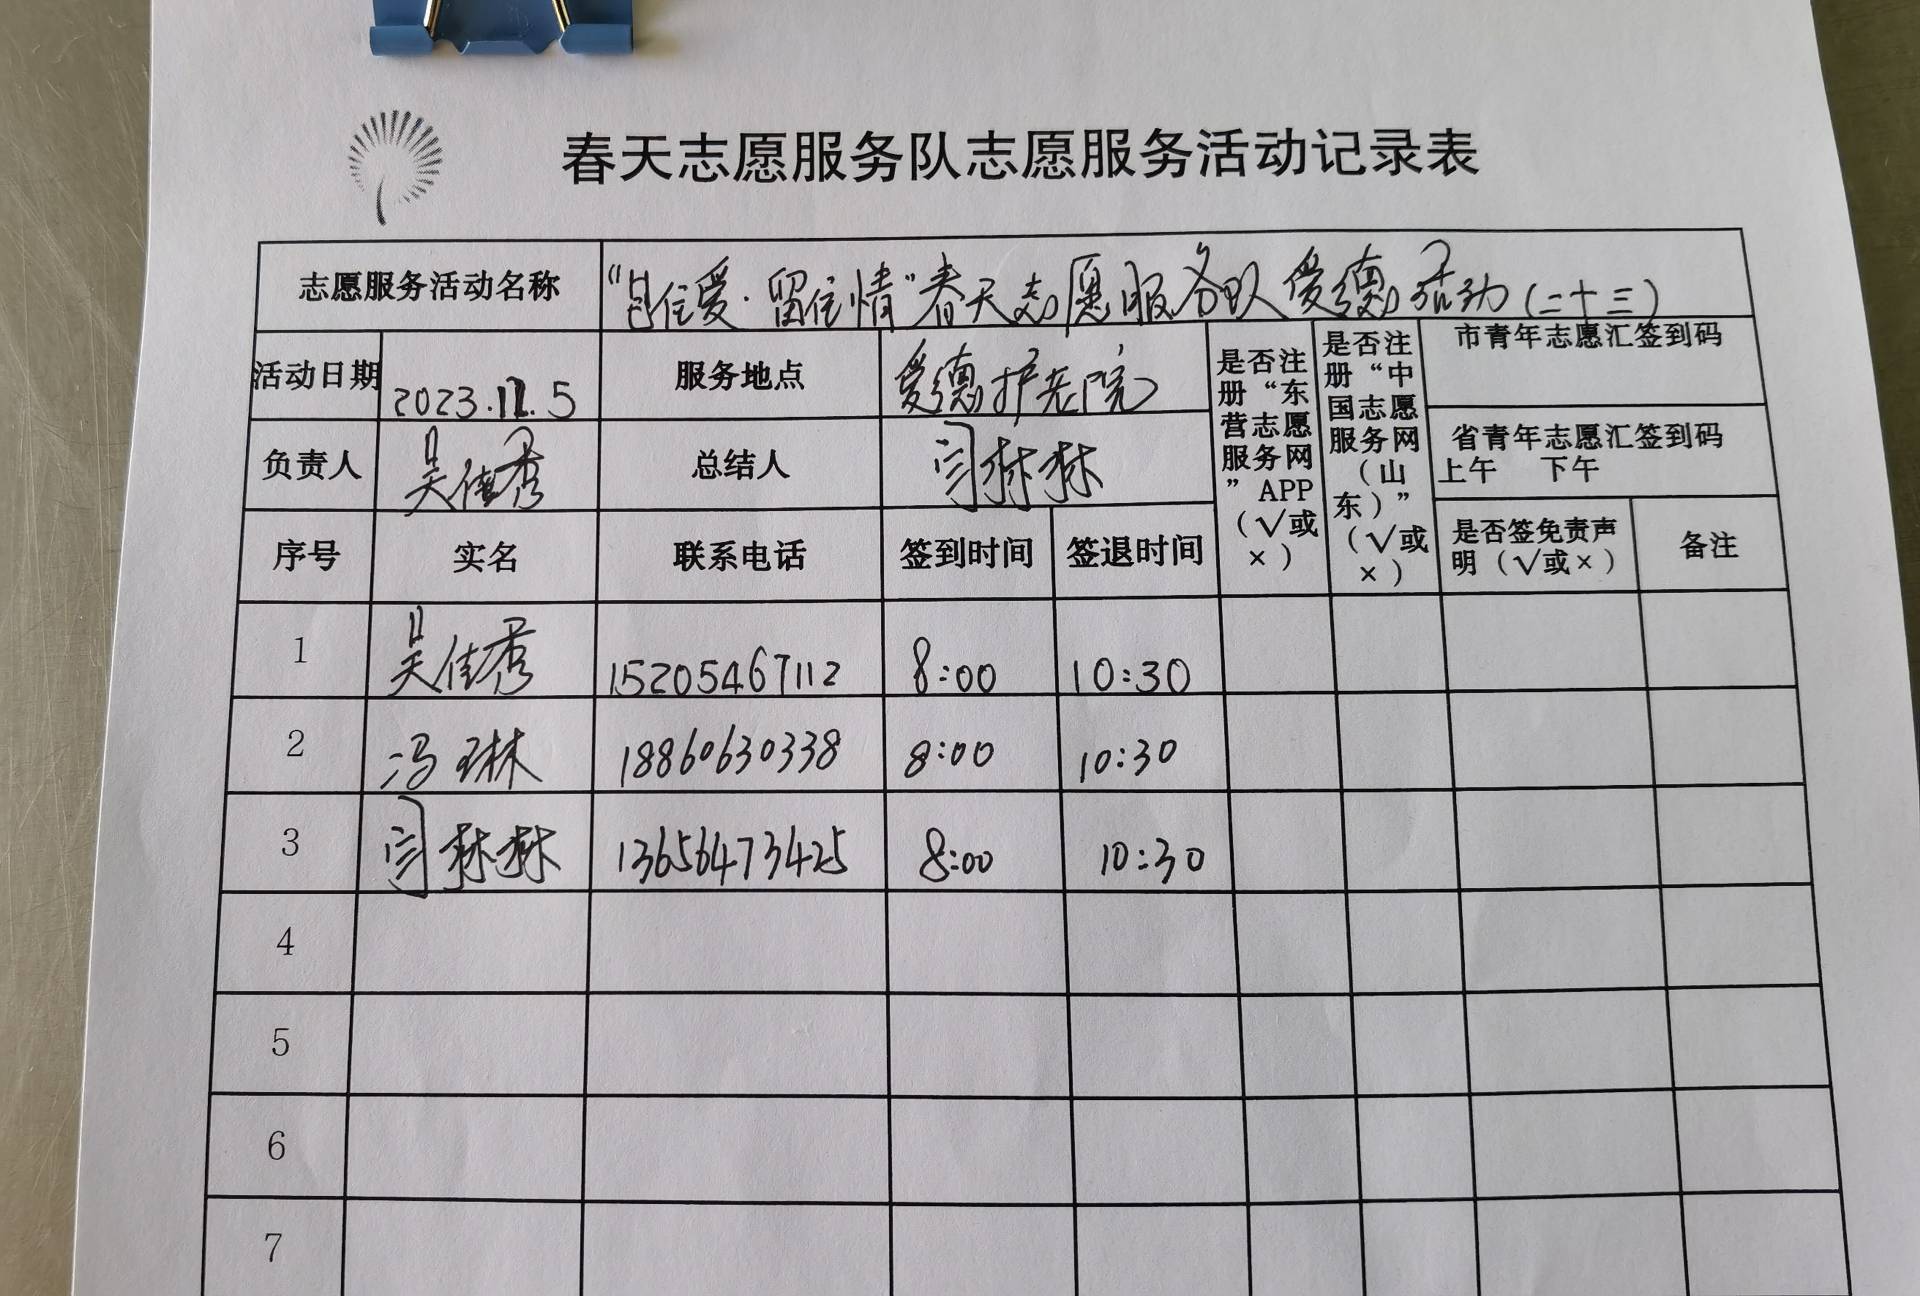 春天志愿服务队志愿服务活动记录表
志愿服务活动名称 住爱·留住情"春天志愿服务队爱德活动(二十三)
活动日期 2023.12.5 服务地点 爱德护老院 是否注册“东营志愿服务网”APP（√或×） 是否注册“中国志愿服务网（山东）”（√或×） 市青年志愿汇签到码
负责人 吴佳秀 总结人 闫林林 省青年志愿汇签到码
上午 下午
序号 实名 联系电话 签到时间 签退时间 是否签免责声明（√或×） 备注
1 吴佳秀 15205467112 8:00 10:30
2 冯琳 18860630338 8:00 10:30
3 闫林林 13656473425 8:00 10:30
4
5
6
7